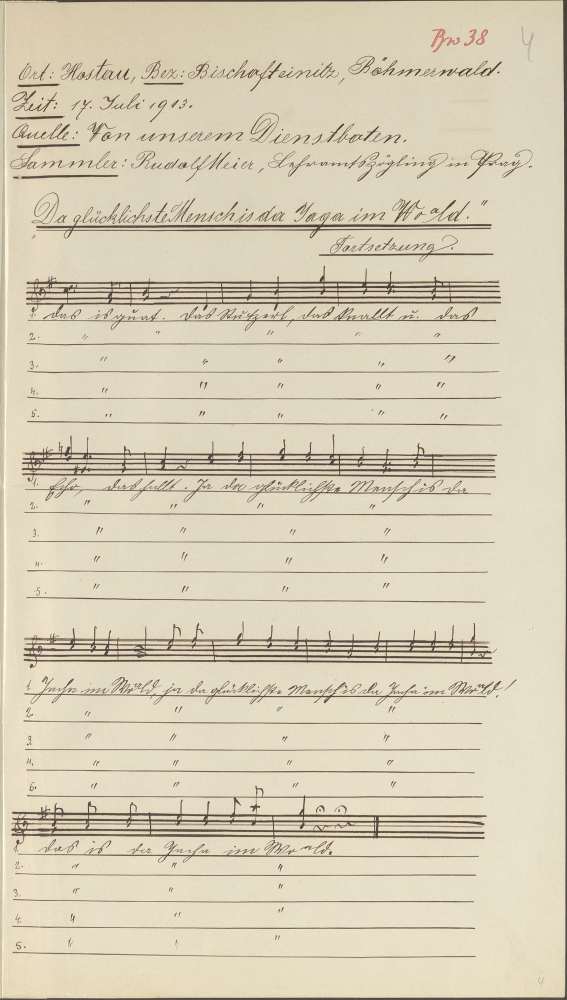 Bw 38
4
Ort: Hostau, Bez: Bischofteinitz, Böhmerwald.
Zeit: 17. Juli 1913.
Quelle: Von unserem Dienstboten.
Sammler: Rudolf Meier, Lehramtszögling in Prag.
„Da glücklichste Mensch is da Jaga im Woald."
Fortsetzung.
1. das is guat. Das Stutzerl, das knallt u. das
2. " " " " "
3. " " " " "
4. " " " " "
5. " " " " "
1. Echo, das hallt. Ja da glücklichste Mensch is da
2. " " " "
3. " " " "
4. " " " "
5. " " " "
1. Jacha im Woald, ja da glücklichste Mensch is da Jacha im Woald!
2. " " " "
3. " " " "
4. " " " "
5. " " " "
1. das is da Jacha im Woald.
2. " " "
3. " " "
4. " " "
5. " " "
4